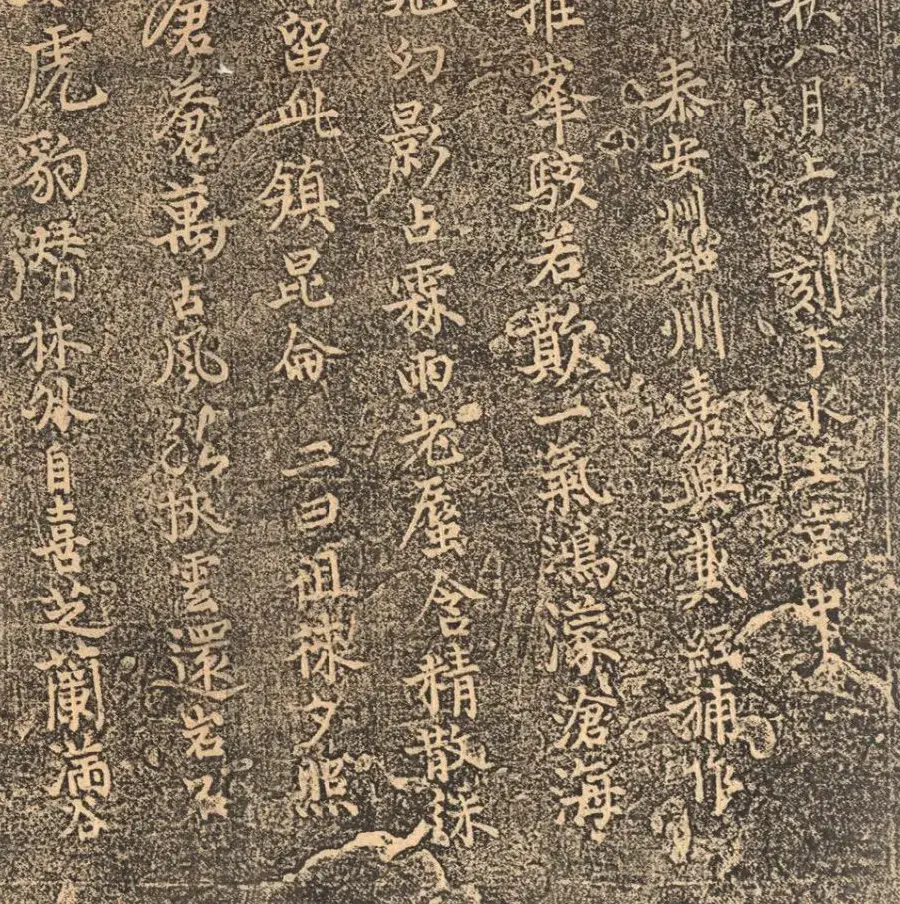 秋八月上旬刻于水玉堂中
泰安州知州嘉興戴經補作
推峯駭若欺一氣鴻濛滄海
幻影占霖雨老蜃含精散珠
留此鎮昆侖 二曰徂徠夕照
滄蒼萬古風 狹雲還岩
虎豹潛林外自喜芝蘭滿谷